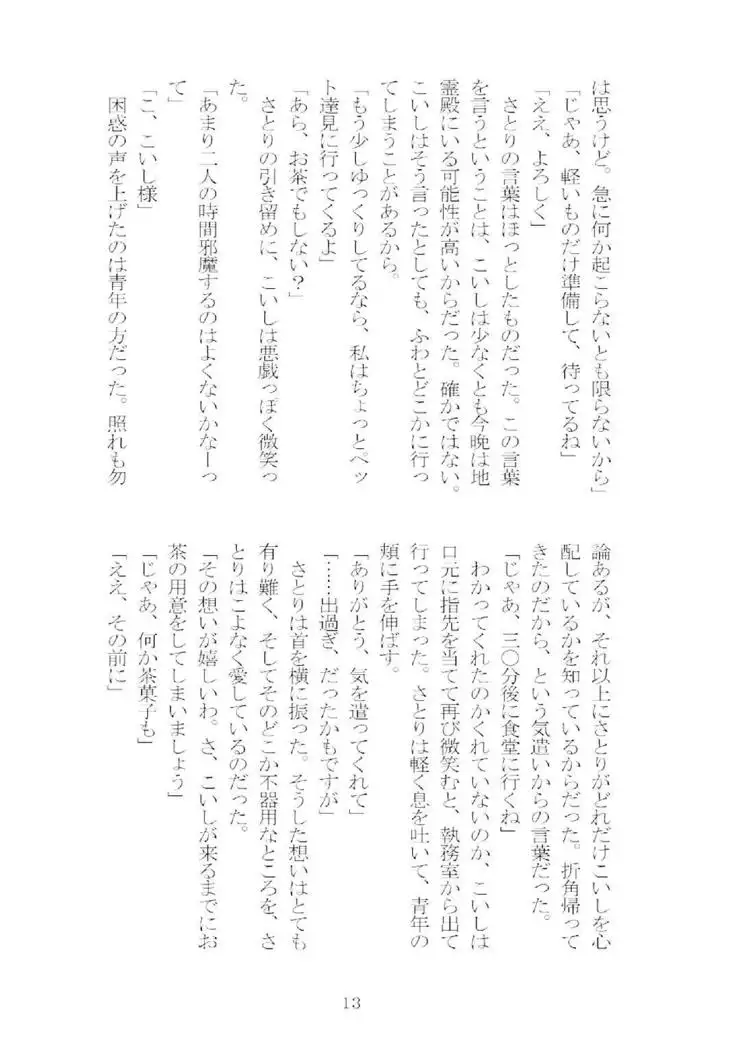 は思うけど。急に何か起こらないとも限らないから」
「じゃあ、軽いものだけ準備して、待ってるね」
「ええ、よろしく」
　さとりの言葉はほっとしたものだった。この言葉
を言うということは、こいしは少なくとも今晩は地
霊殿にいる可能性が高いからだった。確かではない。
こいしはそう言ったとしても、ふわとどこかに行っ
てしまうことがあるから。
「もう少しゆっくりしてるなら、私はちょっとペッ
ト達見に行ってくるよ」
「あら、お茶でもしない？」
　さとりの引き留めに、こいしは悪戯っぽく微笑っ
た。
「あまり二人の時間邪魔するのはよくないかなーっ
て」
「こ、こいし様」
　困惑の声を上げたのは青年の方だった。照れも勿
論あるが、それ以上にさとりがどれだけこいしを心
配しているかを知っているからだった。折角帰って
きたのだから、という気遣いからの言葉だった。
「じゃあ、三〇分後に食堂に行くね」
　わかってくれたのかくれていないのか、こいしは
口元に指先を当てて再び微笑むと、執務室から出て
行ってしまった。さとりは軽く息を吐いて、青年の
頬に手を伸ばす。
「ありがとう、気を遣ってくれて」
「……出過ぎ、だったかもですが」
　さとりは首を横に振った。そうした想いはとても
有り難く、そしてそのどこか不器用なところを、さ
とりはこよなく愛しているのだった。
「その想いが嬉しいわ。さ、こいしが来るまでにお
茶の用意をしてしまいましょう」
「じゃあ、何か茶菓子も」
「ええ、その前に」
13